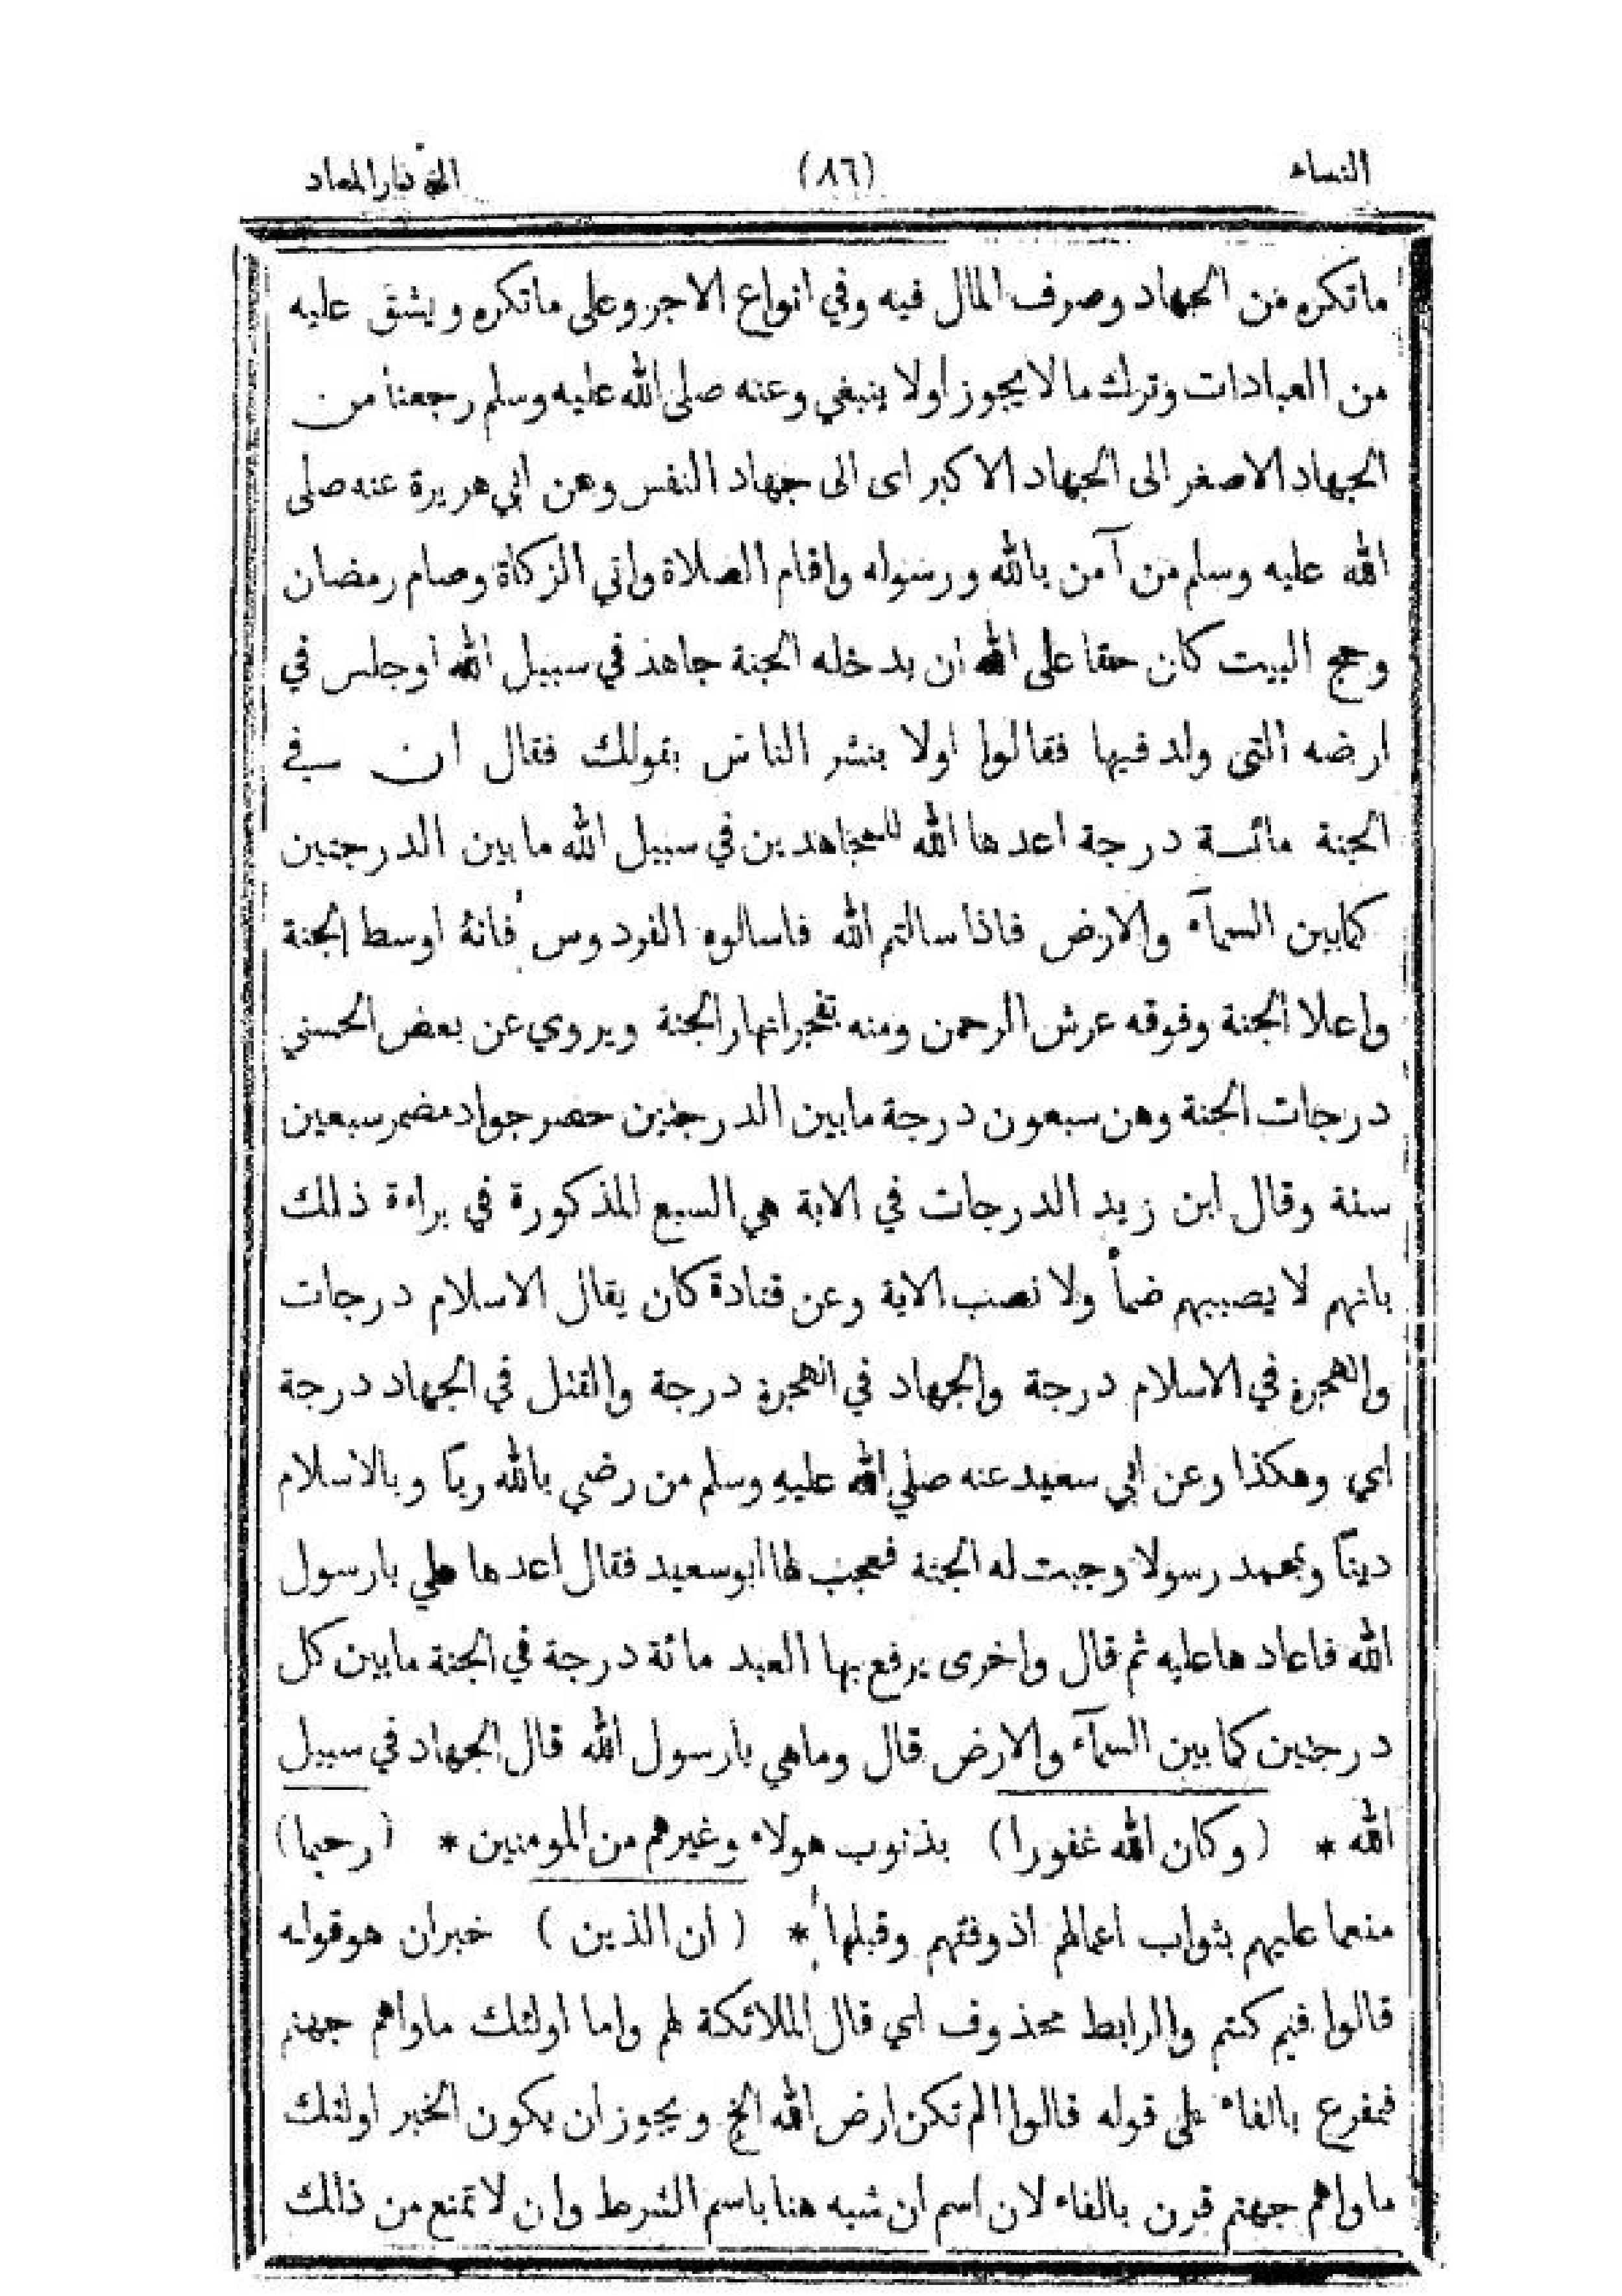 النساء (٨٦) دار المعاد
ماتكره من الجهاد وصرف المال فيه وفي انواع الاجر وعلى ماتكره ويشق عليه
من العبادات وترك ما لا يجوز اولا ينبغي وعنه صلى الله عليه وسلم رجعنا من
الجهاد الاصغر الى الجهاد الاكبر اى الى جهاد النفس وعن ابي هريرة عنه صلى
الله عليه وسلم من آمن بالله ورسوله واقام الصلاة واتي الزكاة وصام رمضان
وحج البيت كان حقا على الله ان يدخله الجنة جاهد في سبيل الله او جلس في
ارضه التى ولد فيها فقالوا اولا بنشر الناس بقولك فقال ان في
الجنة مائة درجة اعدها الله للمجاهدين في سبيل الله ما بين الدرجتين
كمابين السمآء والارض فاذا سالتم الله فاسالوه الفردوس فانه اوسط الجنة
واعلا الجنة وفوقه عرش الرحمن ومنه تفجر انهار الجنة ويروي عن بعض الحسني
درجات الجنة وهن سبعون درجة مابين الدرجتين حصر جواد مضمر سبعين
سنة وقال ابن زيد الدرجات في الاية هي السبع المذكورة في براءة ذلك
بانهم لا يصيبهم ضمأ ولا نصب الاية وعن قتادة كان يقال الاسلام درجات
والهجرة في الاسلام درجة والجهاد في الهجرة درجة والقتل في الجهاد درجة
اي وهكذا وعن ابي سعيد عنه صلي الله عليه وسلم من رضي بالله ربا وبالاسلام
دينا وبمحمد رسولا وجبت له الجنة فعجب لها ابو سعيد فقال اعدها علي يارسول
الله فاعادها عليه ثم قال واخرى يرفع بها العبد مائة درجة في الجنة مابين كل
درجتين كما بين السمآء والارض قال وماهي يارسول الله قال الجهاد في سبيل
الله * (وكان الله غفورا) بذنوب هولاء وغيرهم من المومنين * (رحيما)
منعما عليهم بثواب اعمالهم اذ وفقهم وقبلها * (ان الذين) خبران هو قوله
قالوا فيم كنتم والرابط محذوف اي قال الملائكة لهم واما اولئك ماواهم جهنم
فمفرع بالفاء على قوله قالوا الم تكن ارض الله الخ ويجوز ان يكون الخبر اولئك
ماواهم جهنم قرن بالفاء لان اسم ان شبه هنا باسم الشرط وان لا تمنع من ذالك